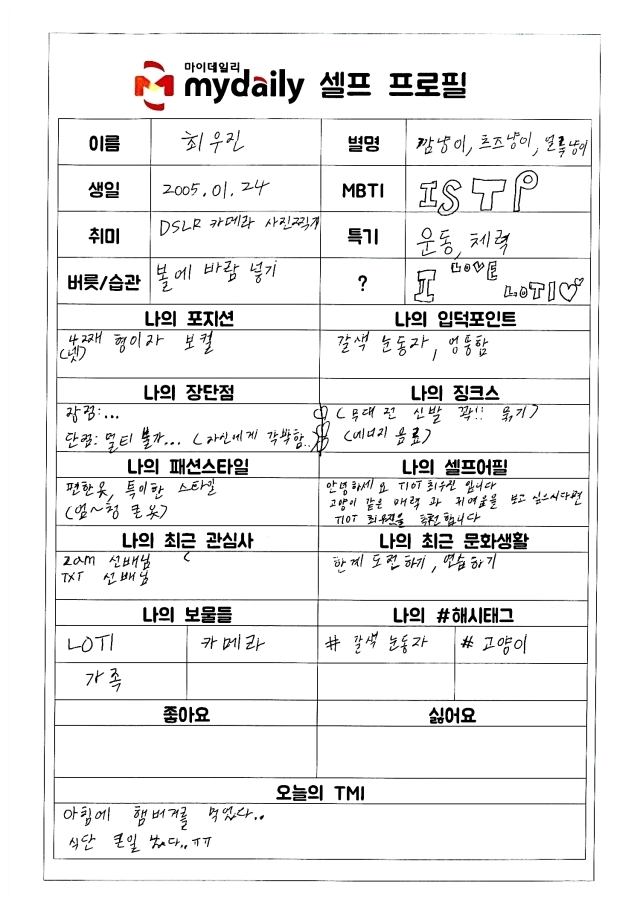 마이데일리
mydaily 셀프 프로필
이름 최우진 별명 깜냥이, 츠즈냥이, 얼룩냥이
생일 2005.01.24 MBTI ISTP
취미 DSLR 카메라 사진찍기 특기 운동, 체력
버릇/습관 볼에 바람 넣기 ? I LOVE LOTI♡
나의 포지션 나의 입덕포인트
4째 형이자 보컬
(넷)
갈색 눈동자, 엉뚱함
나의 장단점 나의 징크스
장점:...
단점: 멀티 불가... (타인에게 각박함..)
(무대 전 신발 꽉!! 묶기)
(에너지 음료)
나의 패션스타일 나의 셀프어필
편한옷, 특이한 스타일
(엄~청 큰 옷)
안녕하세요 TIOT 최우진 입니다
고양이 같은 매력 과 귀여움을 보고 싶으시다면
TIOT 최우진을 추천 합니다
나의 최근 관심사 나의 최근 문화생활
선배님
TXT 선배님
한계 도전하기, 연습하기
나의 보물들 나의 #해시태그
LOTI 카메라 # 갈색 눈동자 # 고양이
가족
좋아요 싫어요
오늘의 TMI
아침에 햄버거를 먹었다..
식단 큰일 났다..ㅠㅠ